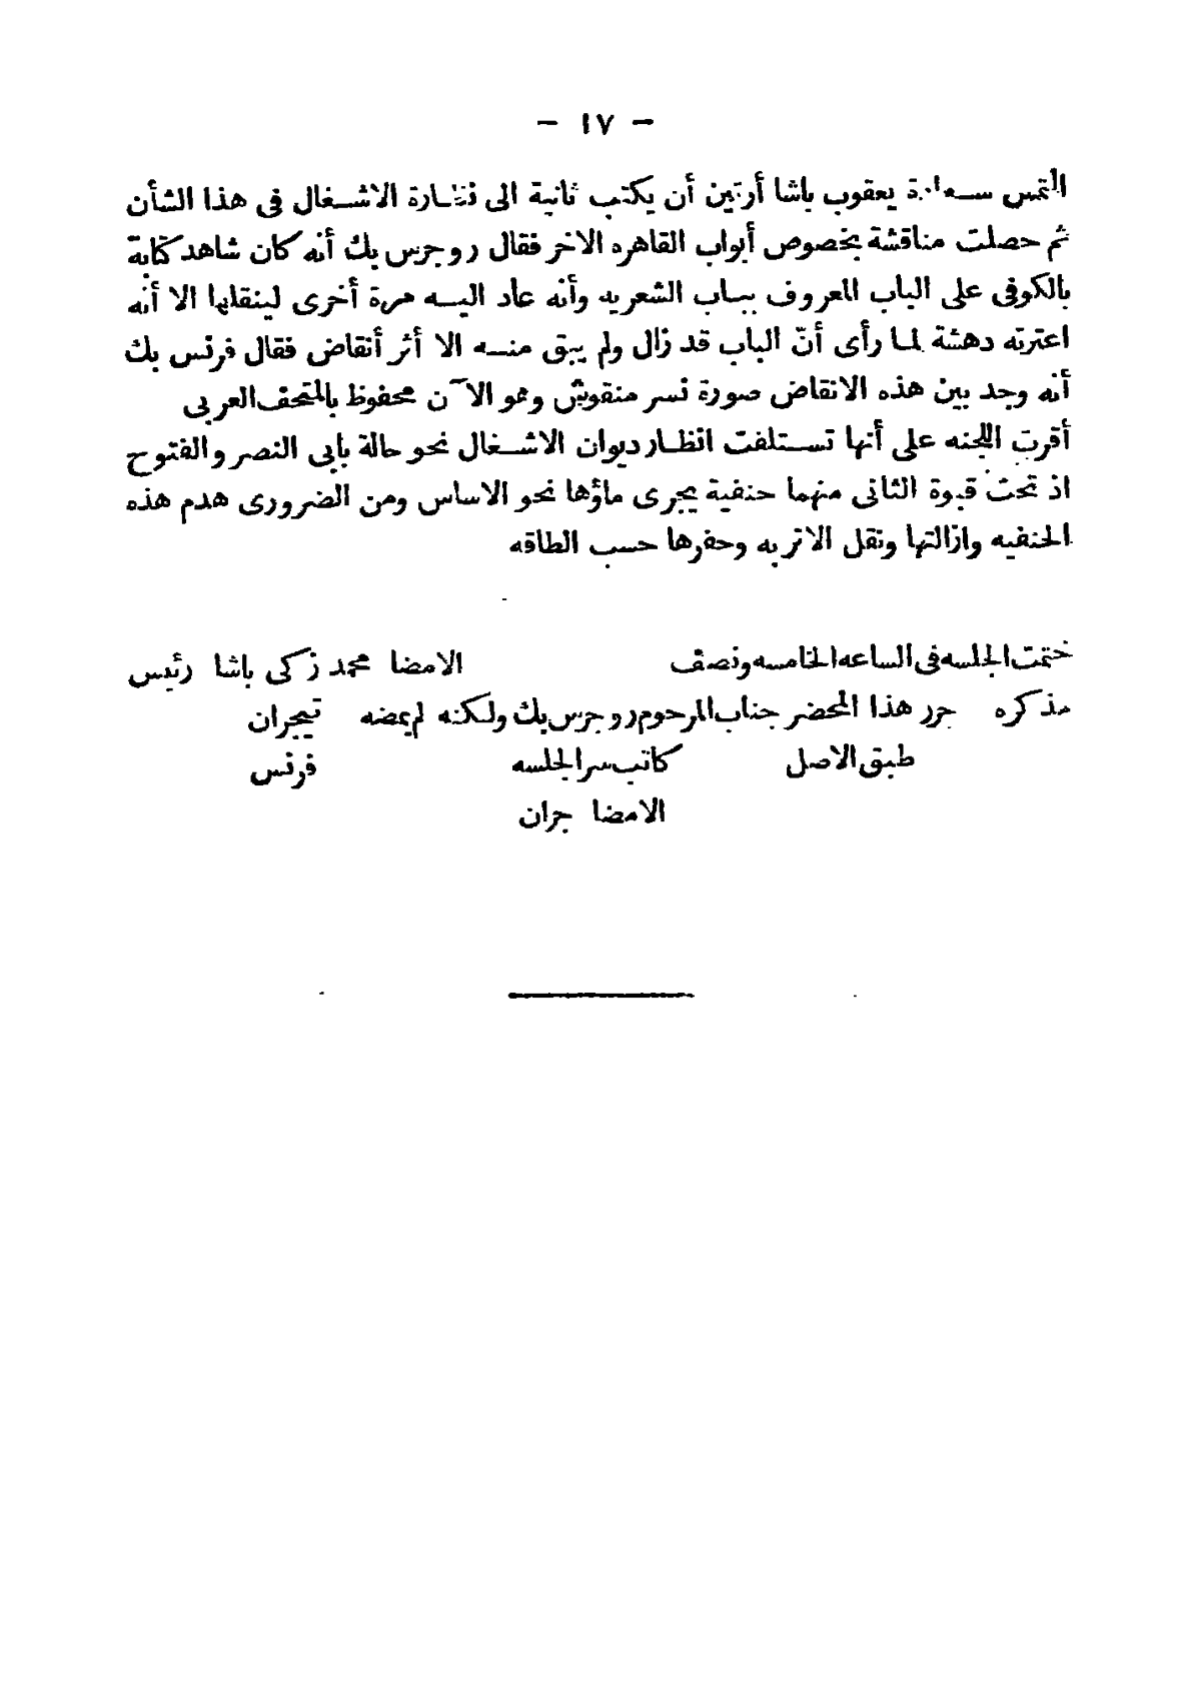 — ١٧ —
التمس سعادة يعقوب باشا أرتين أن يكتب ثانية الى نظارة الاشغال فى هذا الشأن
ثم حصلت مناقشة بخصوص أبواب القاهره الاخر فقال روجرس بك أنه كان شاهد كتابة
بالكوفى على الباب المعروف بباب الشعريه وأنه عاد اليه مرة أخرى لينقلها الا أنه
اعترته دهشة لما رأى أنّ الباب قد زال ولم يبق منه الا أثر أنقاض فقال فرنس بك
أنه وجد بين هذه الانقاض صورة نسر منقوش وهو الآن محفوظ بالمتحف العربى
أقرت اللجنه على أنها تستلفت انظار ديوان الاشغال نحو حالة بابى النصر والفتوح
اذ تحت قبوة الثانى منهما حنفية يجرى ماؤها نحو الاساس ومن الضرورى هدم هذه
الحنفيه وازالتها ونقل الاتربه وحفرها حسب الطاقه
ختمت الجلسه فى الساعه الخامسه ونصف الامضا محمد زكى باشا رئيس
مذكره حرر هذا المحضر جناب المرحوم روجرس بك ولكنه لم يمضه تيجران
طبق الاصل كاتب سر الجلسه فرنس
الامضا جران